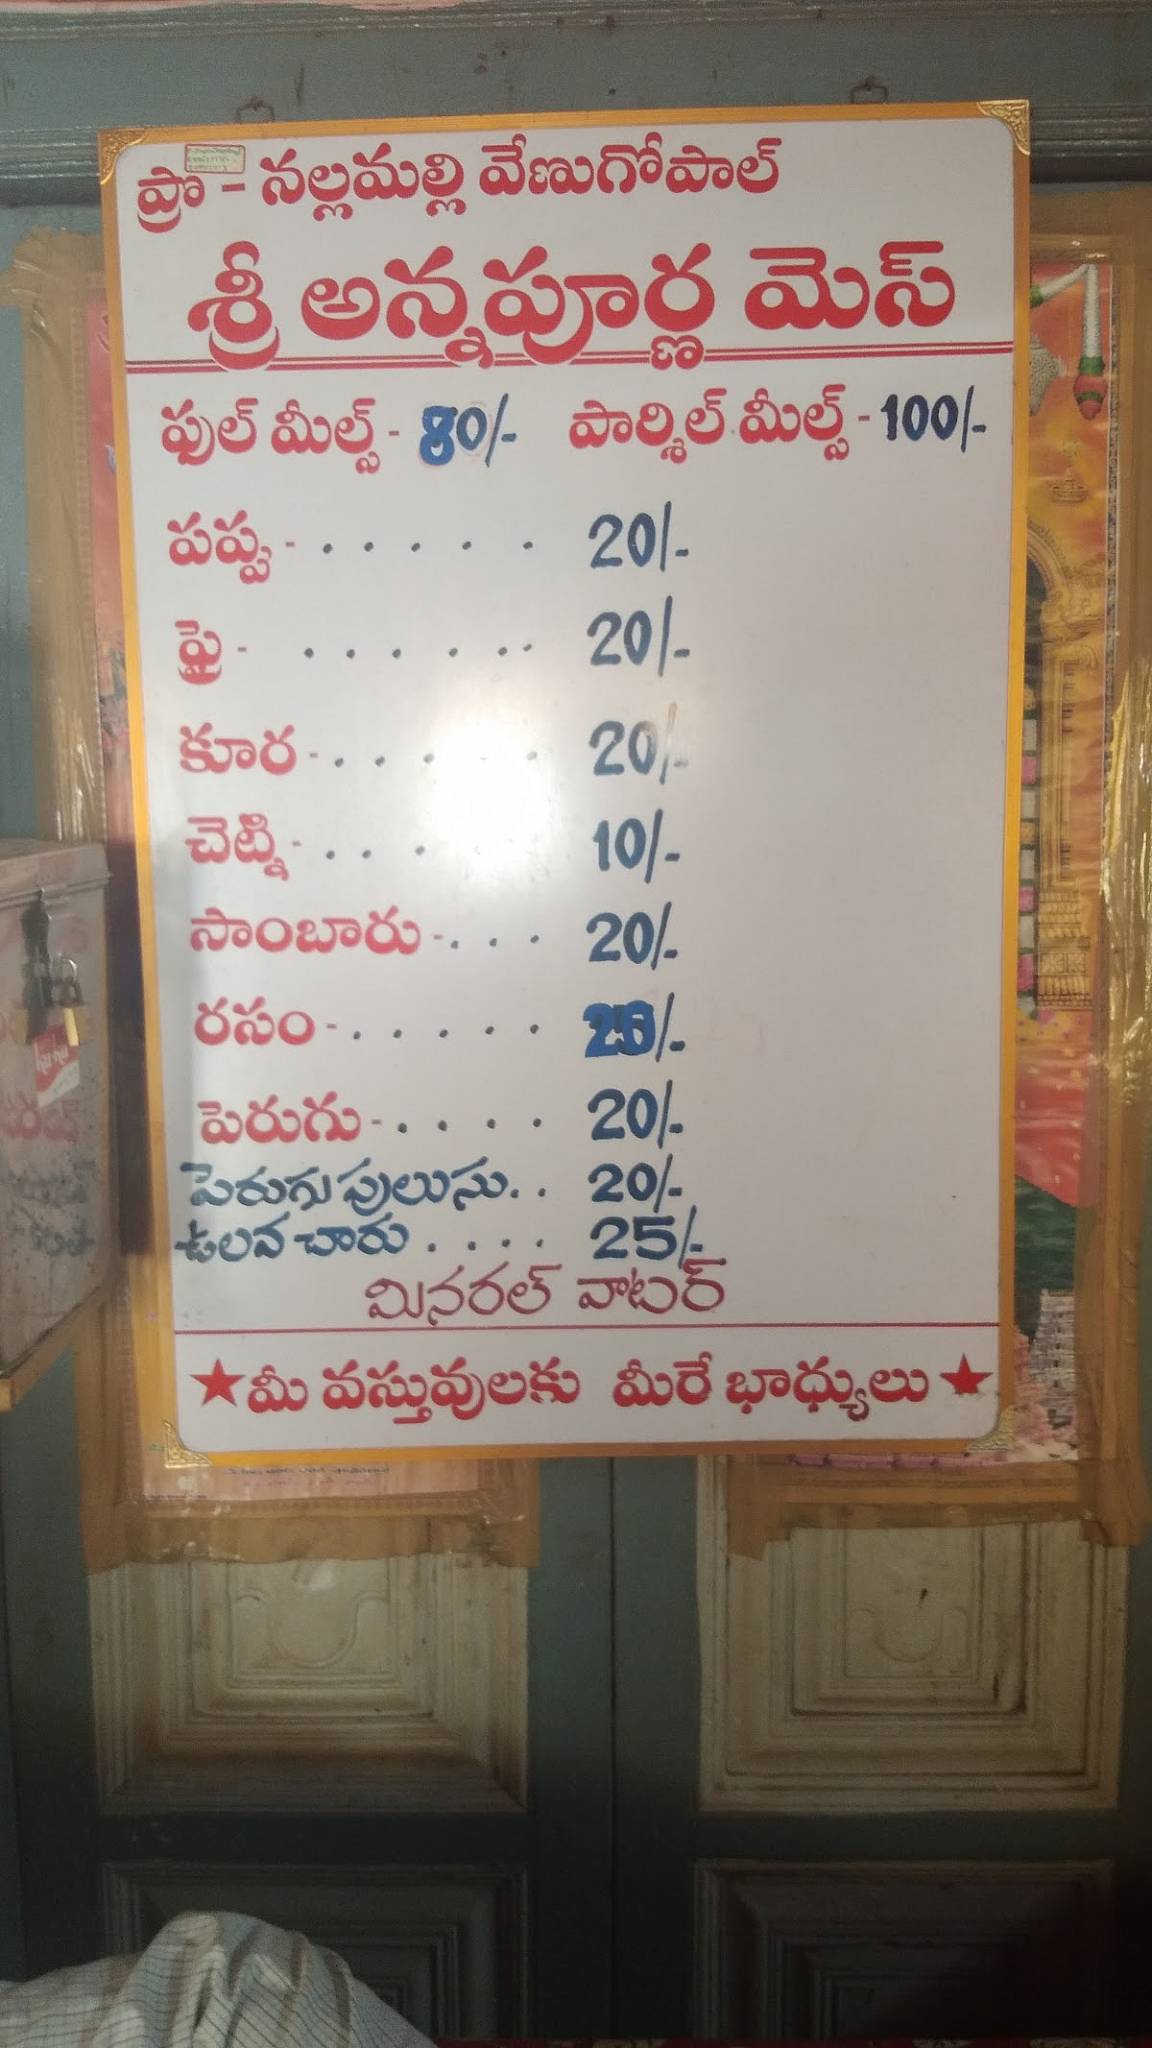 ప్రొ - నల్లమల్లి వేణుగోపాల్
శ్రీ అన్నపూర్ణ మెస్
ఫుల్ మీల్స్ - 80/- పార్శిల్ మీల్స్ - 100/-
పప్పు - . . . . . 20/-
ఫ్రై - . . . . . . 20/-
కూర - . . . . . 20/-
చెట్ని - . . . 10/-
సాంబారు - . . . 20/-
రసం - . . . . . 20/-
పెరుగు - . . . . 20/-
పెరుగు పులుసు . . 20/-
ఉలవ చారు . . . . 25/-
మినరల్ వాటర్
★ మీ వస్తువులకు మీరే భాధ్యులు ★